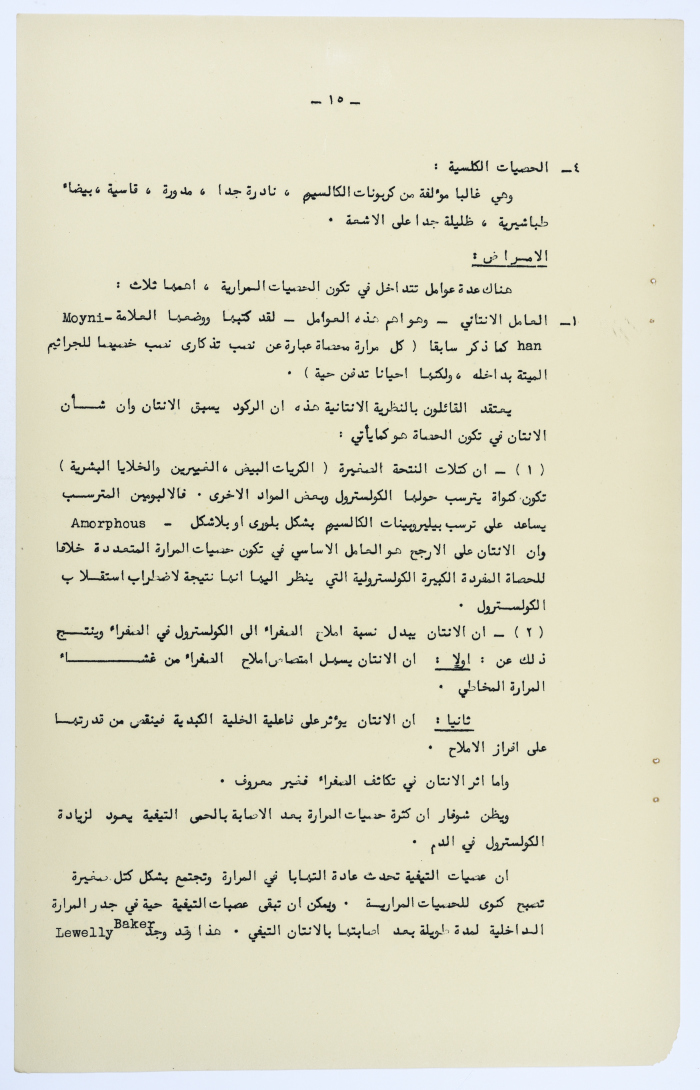 ـ ١٥ ـ
٤ـ الحصيات الكلسية :
وهي غالبا مؤلفة من كربونات الكالسيوم ، نادرة جدا ، مدورة ، قاسية ، بيضاء
طباشيرية ، ظليلة جدا على الاشعة .
الامراض :
هناك عدة عوامل تتداخل في تكون الحصيات المرارية ، اهمها ثلاث :
١ـ العامل الانتاني ـ وهو اهم هذه العوامل ـ لقد كتبها ووضعها العلامة Moyni-
han كما ذكر سابقا ( كل مرارة محصاة عبارة عن نصب تذكارى نصب خصيصا للجراثيم
الميتة بداخله ، ولكنها احيانا تدفن حية ) .
يعتقد القائلون بالنظرية الانتانية هذه ان الركود يسبق الانتان وان شـــأن
الانتان في تكون الحصاة هو كمايأتي :
( ١ ) ـ ان كتلات النتحة الصغيرة ( الكريات البيض ، الفيبرين والخلايا البشرية )
تكون كنواة يترسب حولها الكولسترول وبعض المواد الاخرى . فالالبومين المترسب
يساعد على ترسب بيليروبينات الكالسيم بشكل بلورى او بلاشكل ـ Amorphous
وان الانتان على الارجح هو العامل الاساسي في تكون حصيات المرارة المتعددة خلافا
للحصاة المفردة الكبيرة الكولسترولية التي ينظر اليها انها نتيجة لاضطراب استقلاب
الكولسترول .
( ٢ ) ـ ان الانتان يبدل نسبة املاح الصفراء الى الكولسترول في الصفراء وينتـــج
ذلك عن : اولا : ان الانتان يسهل امتصاص املاح الصفراء من غشــــــاء
المرارة المخاطي .
ثانيا : ان الانتان يؤثر على فاعلية الخلية الكبدية فينقص من قدرتهـا
على افراز الاملاح .
واما اثر الانتان في تكاثف الصفراء فغير معروف .
ويظن شوفار ان كثرة حصيات المرارة بعد الاصابة بالحمى التيفية يعود لزيادة
الكولسترول في الدم .
ان عصيات التيفية تحدث عادة التهابا في المرارة وتجتمع بشكل كتل صغيرة
تصبح كنوى للحصيات المراريـة . ويمكن ان تبقى عصبات التيفية حية في جدر المرارة
الداخلية لمدة طويلة بعد اصابتها بالانتان التيفي . هذا وقد وجد Baker Lewelly